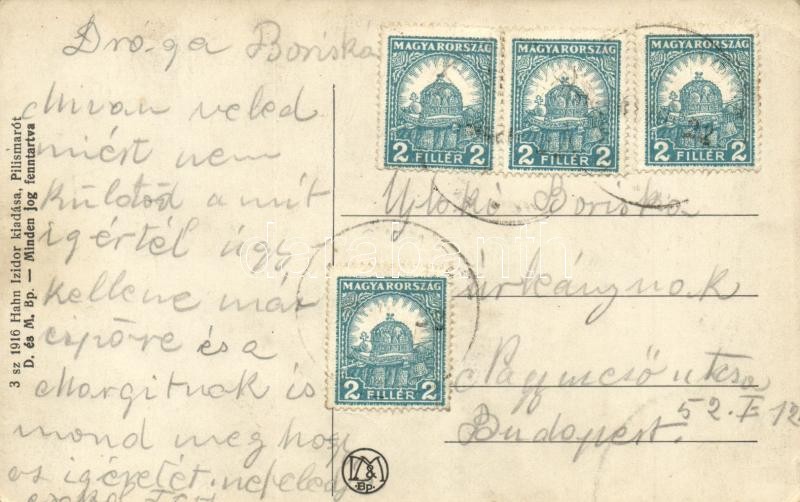 Dró-ga Boriská
Mi van veled
miért nem
külöd a mit
igértél úgy
kellene már
cipőre és a
Margitnak is
mond meg hogy
az igéretét ne feled
MAGYARORSZÁG
2 FILLÉR 2
MAGYARORSZÁG
2 FILLÉR 2
MAGYARORSZÁG
2 FILLÉR 2
Ujloki Boriska
úrleánynak
Nagymező utca
52. I. 12
Budapest.
MAGYARORSZÁG
2 FILLÉR 2
3 sz 1916 Hahn Izidor kiadása, Pilismarót
D. és M. Bp. — Minden jog fenntartva
D&M
Bp.
darabanth